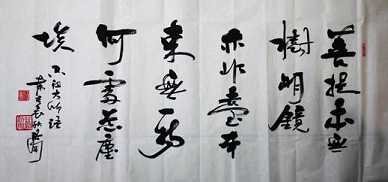 菩提本無
樹明鏡
亦非臺本
來無一物
何處惹塵
埃
六祖大師語